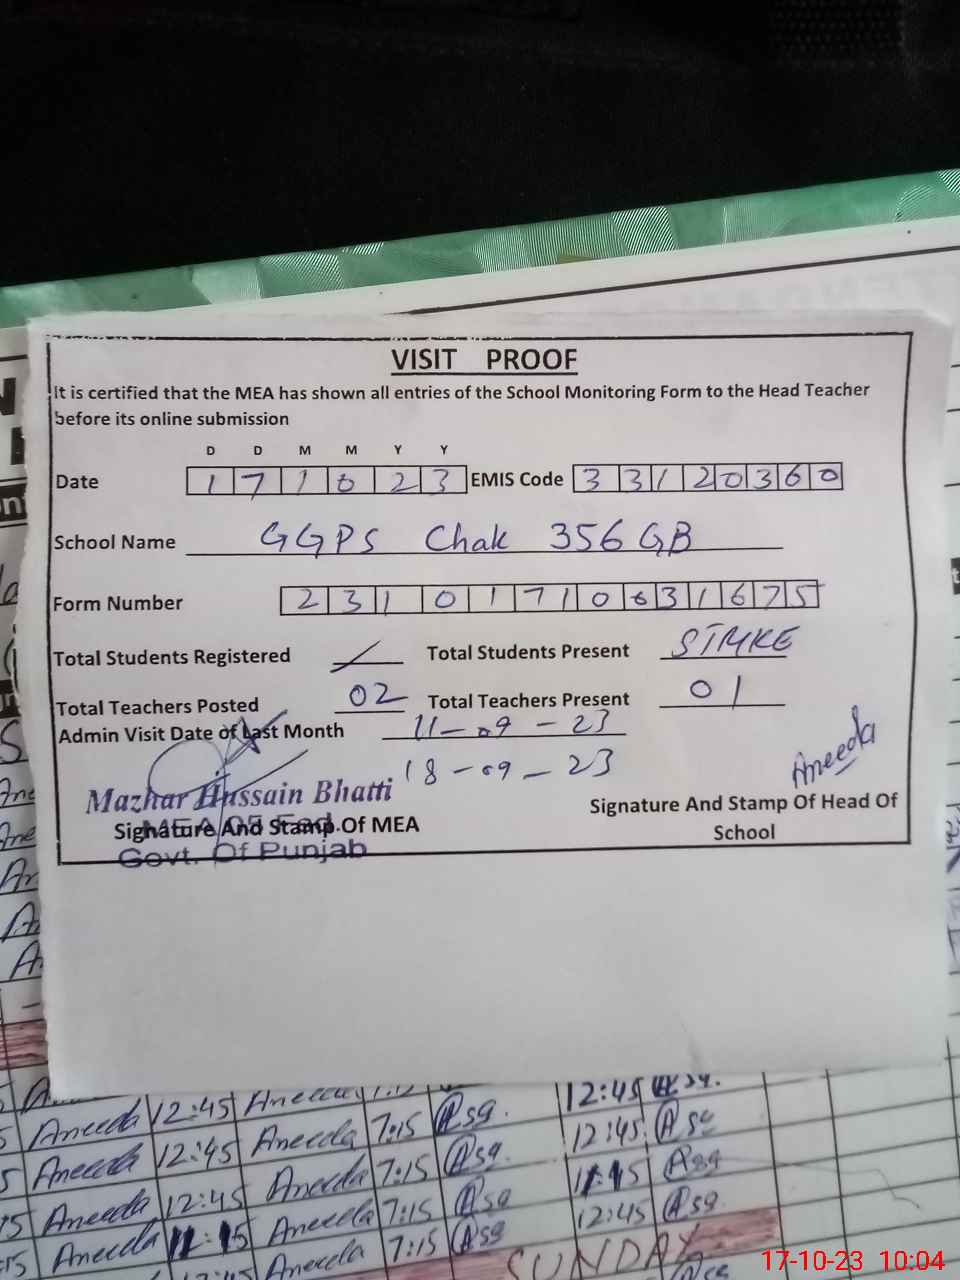 VISIT PROOF
It is certified that the MEA has shown all entries of the School Monitoring Form to the Head Teacher
before its online submission
D D M M Y Y
Date 1 7 1 0 2 3 EMIS Code 3 3 1 2 0 3 6 0
School Name GGPS Chak 356 GB
Form Number 2 3 1 0 1 7 1 0 6 3 1 6 7 5
Total Students Registered Total Students Present STRIKE
Total Teachers Posted 02 Total Teachers Present 01
Admin Visit Date of Last Month 11-09-23
18-09-23
Aneeda
Mazhar Hussain Bhatti
Signature And Stamp Of MEA
Govt. Of Punjab
Signature And Stamp Of Head Of
School
12:45
Aneeda 12:45 Aneeda 7:15 12:45
Aneeda 12:45 Aneeda 7:15 11:15
Aneeda 12:45 Aneeda 7:15 12:45
Aneeda 11:15 Aneeda 7:15
SUNDAY
17-10-23 10:04